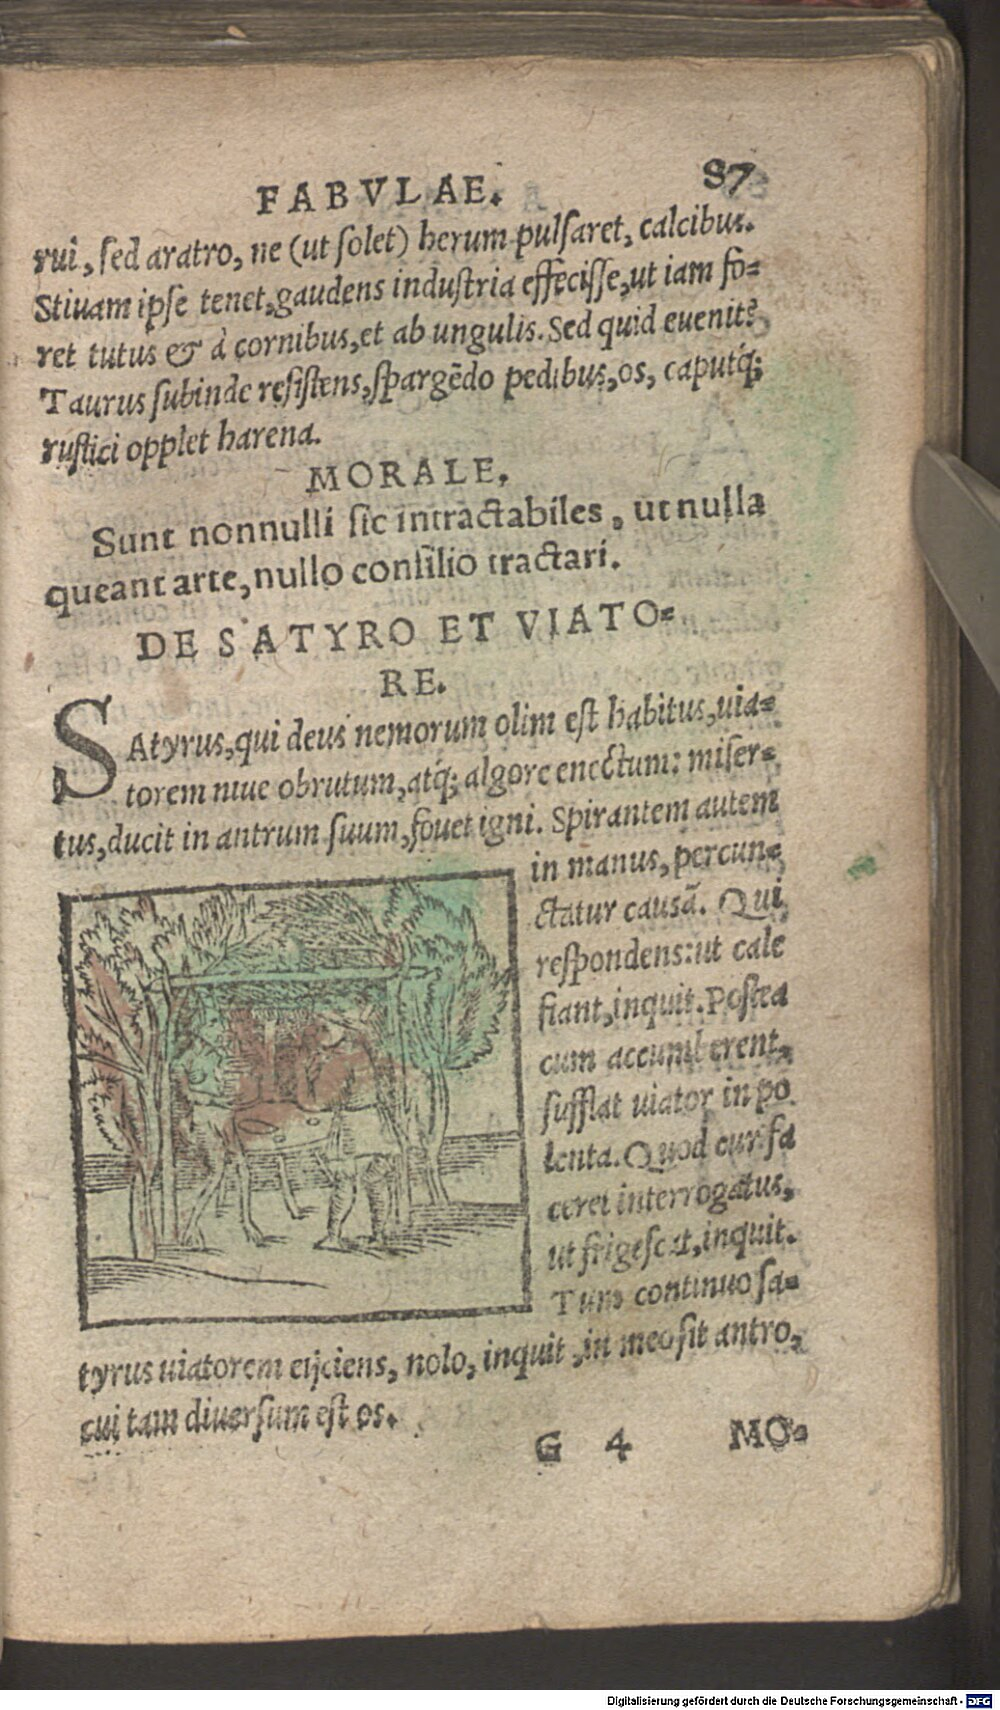 FABVLAE. 87
rui, sed aratro, ne (ut solet) herum pulsaret, calcibus.
Stiuam ipse tenet, gaudens industria effecisse, ut iam fo=
ret tutus & à cornibus, et ab ungulis. Sed quid euenit?
Taurus subinde resistens, spargēdo pedibus, os, caputq́;
rustici opplet harena.
MORALE,
Sunt nonnulli sic intractabiles, ut nulla
queant arte, nullo consilio tractari.
DE SATYRO ET VIATO=
RE.
SAtyrus, qui deus nemorum olim est habitus, uia=
torem niue obrutum, atq́; algore enectum: miser=
tus, ducit in antrum suum, fouet igni. Spirantem autem
in manus, percun=
ctatur causā. Qui
respondens: ut cale
fiant, inquit. Postea
cum accumberent,
sufflat uiator in po
lenta. Quod cur fa
ceret interrogatus,
ut frigescat, inquit.
Tum continuo sa=
tyrus uiatorem eijciens, nolo, inquit, in meo sit antro,
cui tam diuersum est os.
G 4 MO=
Digitalisierung gefördert durch die Deutsche Forschungsgemeinschaft - DFG